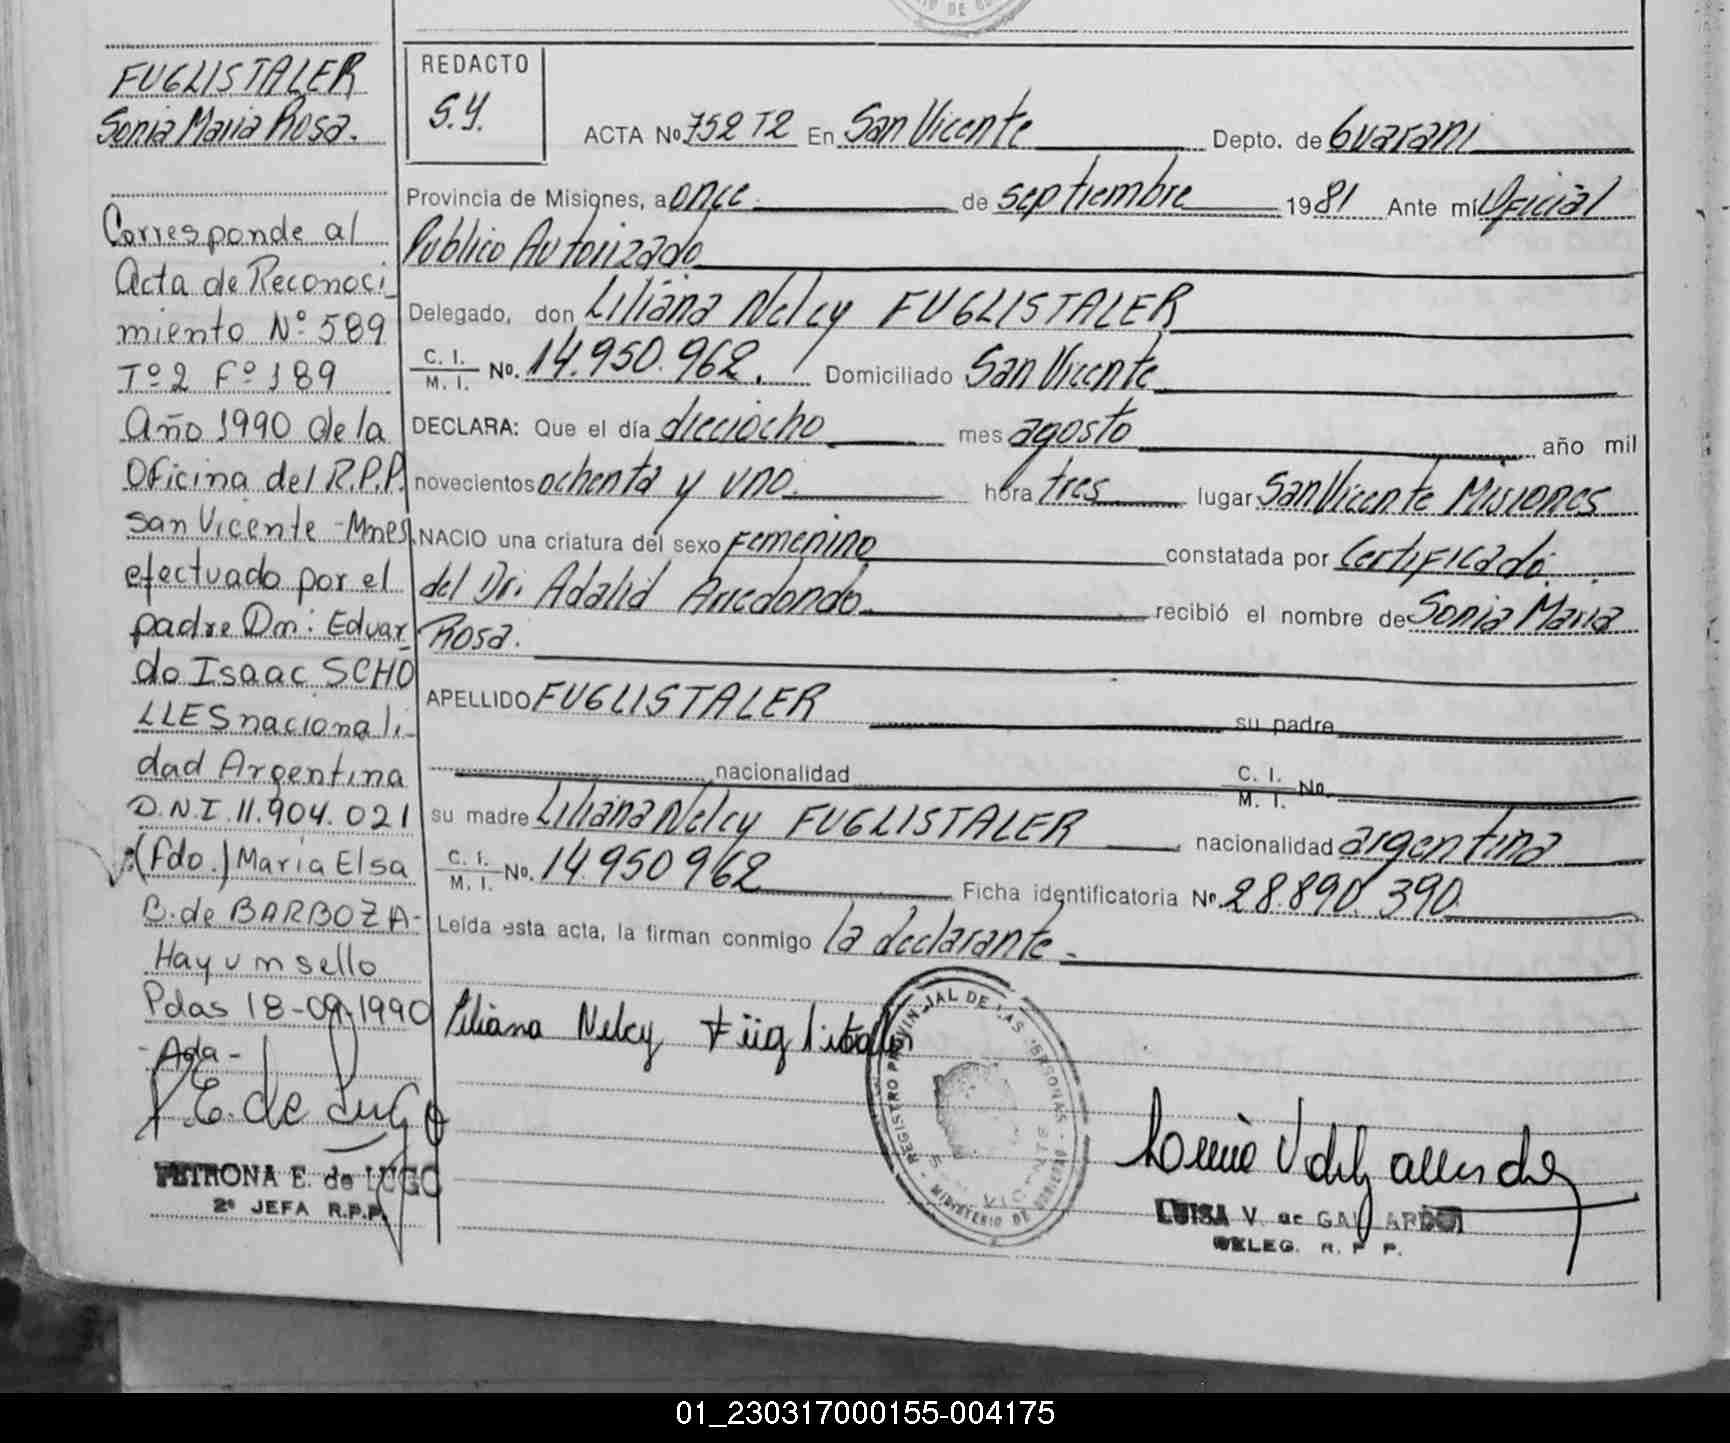 FUGLISTALER
Sonia Maria Rosa.
Corresponde al
Acta de Reconoci_
miento Nº 589
Tº2 Fº 189
Año 1990 de la
Oficina del R.P.P.
San Vicente - Mnes.
efectuado por el
padre Dn: Eduar
do Isaac SCHO
LLES nacionali_
dad Argentina
D.N.I. 11.904.021
(Fdo.) Maria Elsa
B. de BARBOZA-
Hay un sello
Pdas 18-09-1990
E. de Lugo
PETRONA E. de LUGO
2ª JEFA R.P.P.
REDACTO
S.Y.
ACTA Nº 752 T2 En San Vicente Depto. de Guarani
Provincia de Misiones, a once de septiembre 1981 Ante mí Oficial
Publico Autorizado
Delegado, don Liliana Nelcy FUGLISTALER
C. I. / M. I. Nº. 14.950.962. Domiciliado San Vicente
DECLARA: Que el día dieciocho mes agosto año mil
novecientos ochenta y uno. hora tres lugar San Vicente Misiones
NACIO una criatura del sexo Femenino constatada por Certificado.
del Dr. Adalid Arredondo recibió el nombre de Sonia Maria
Rosa.
APELLIDO FUGLISTALER su padre
nacionalidad C. I. / M. I. Nº.
su madre Liliana Nelcy FUGLISTALER nacionalidad argentina
C. I. / M. I. Nº. 14950962 Ficha identificatoria Nº. 28.890.390
Leída esta acta, la firman conmigo la declarante.
Liliana Nelcy Füglistaler
REGISTRO PROVINCIAL DE LAS PERSONAS
SAN VICENTE
MINISTERIO DE GOBIERNO
LUISA V. de GALLARDO
DELEG. R. P. P.
01_230317000155-004175